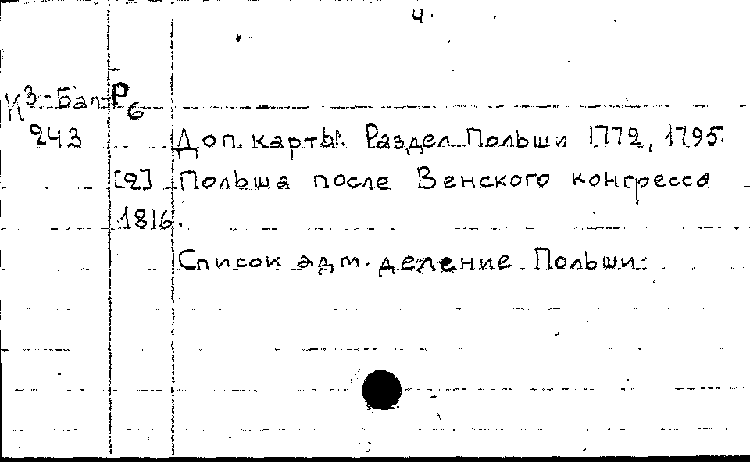 4.
К3-Бал P6
243 Доп. карты: Раздел Польши 1772, 1795.
[2] Польша после Венского конгресса
1816.
Список адм. деление Польши.